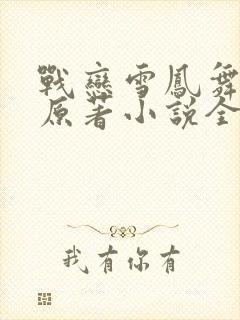 戰戀雪鳳舞
原著小說全
我有你有